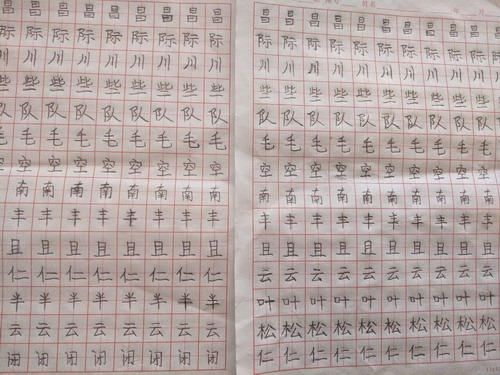 昌昌昌昌昌昌昌昌
际际际际际际际际
川川川川川川川川
些些些些些些些些
队队队队队队队队
毛毛毛毛毛毛毛毛
空空空空空空空空
南南南南南南南南
丰丰丰丰丰丰丰丰
且且且且且且且且
仁仁仁仁仁仁仁仁
半半半半半半半半
云云云云云云云云
闭闭闭闭闭闭闭闭
昌昌昌昌昌昌昌昌昌
际际际际际际际际际
川川川川川川川川川
些些些些些些些些些
队队队队队队队队队
毛毛毛毛毛毛毛毛毛
空空空空空空空空空
南南南南南南南南南
丰丰丰丰丰丰丰丰丰
且且且且且且且且且
云云云云云云云云云
叶叶叶叶叶叶叶叶叶
松松松松松松松松松
仁仁仁仁仁仁仁仁仁